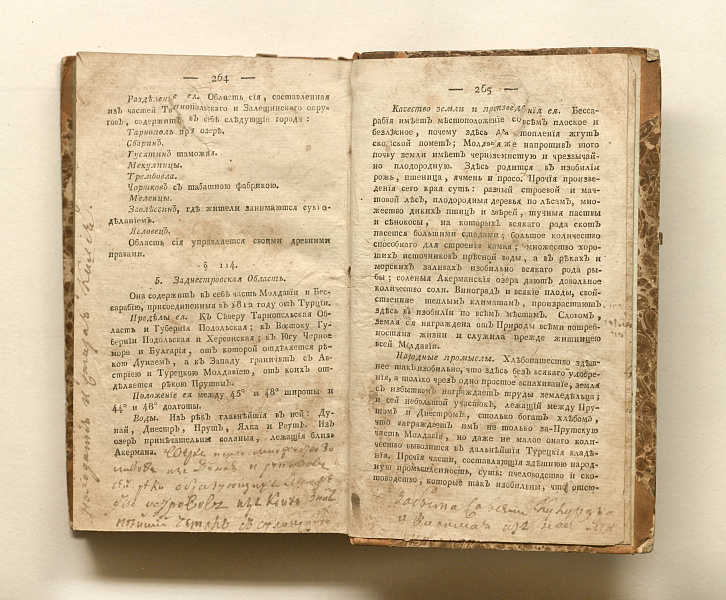 — 264 —
Раздѣленіе ея. Область сія, составленная
изъ частей Тарнопольскаго и Залещинскаго окру-
говъ, содержитъ въ себѣ слѣдующіе города:
Тарнополь при озерѣ.
Сбаринъ.
Гусятинъ таможня.
Мекулинцы.
Трембовла.
Чортковъ съ табашною фабрикою.
Меленцы.
Заолѣссинъ, гдѣ жители занимаются сукно-
дѣланіемъ.
Ягловецъ.
Область сія управляется своими древними
правами.
§ 114.
5. Заднестровская Область.
Она содержитъ въ себѣ часть Молдавіи и Бес-
сарабію, присоединенныя въ 1812 году отъ Турціи.
Предѣлы ея. Къ Сѣверу Тарнопольская Об-
ласть и Губернія Подольская; къ Востоку Гу-
берніи Подольская и Херсонская; къ Югу Черное
море и Булгарія, отъ которой отдѣляется рѣ-
кою Дунаемъ, а къ Западу граничитъ съ Ав-
стріею и Турецкою Молдавіею, отъ коихъ от-
дѣляется рѣкою Прутомъ.
Положеніе ея между 45° и 48° широты и
44° и 48° долготы.
Воды. Изъ рѣкъ главнѣйшія въ ней: Ду-
най, Днестръ, Прутъ, Ялка и Реутъ. Изъ
озеръ примѣчательны соляныя, лежащія близь
Акермана.
— 265 —
Качество земли и произведенія ея. Бесса-
рабія имѣетъ мѣстоположеніе совсѣмъ плоское и
безлѣсное, почему здѣсь для топленія жгутъ
скотской пометъ; Молдавія же напротивъ этого
почву земли имѣетъ черноземистую и чрезвычай-
но плодородную. Здѣсь родится въ изобиліи
рожь, пшеница, ячмень и просо. Прочія произве-
денія сего края суть: разный строевой и мач-
товой лѣсъ, плодородныя деревья по лѣсамъ, мно-
жество дикихъ птицъ и звѣрей, тучныя паствы
и сѣнокосы, на которыхъ всякаго рода скотъ
пасется большими стадами; большое количество
способнаго для строенія камня; множество хоро-
шихъ источниковъ прѣсной воды, а въ рѣкахъ и
морскихъ заливахъ изобильно всякаго рода ры-
бы; соленыя Акерманскія озера даютъ довольное
количество соли. Виноградъ и всякіе плоды, свой-
ственные теплымъ климатамъ, произрастаютъ
здѣсь въ изобиліи по всѣмъ мѣстамъ. Словомъ,
земля ся награждена отъ Природы всѣми потреб-
ностями жизни и служила прежде житницею
всей Молдавіи.
Народные промыслы. Хлѣбопашество здѣш-
нее такъ изобильно, что здѣсь безъ всякаго удобре-
нія, а только чрезъ одно простое вспахиваніе, земля
съ избыткомъ награждаетъ труды земледѣльца;
и сей небольшой участокъ, лежащій между Пру-
томъ и Днестромъ, столько богатъ хлѣбомъ,
что награждаетъ имъ не только за-Прутскую
часть Молдавіи, но даже не малое онаго коли-
чество вывозится въ дальнѣйшія Турецкія владѣ-
нія. Прочія части, составляющія здѣшнюю народ-
ную промышленность, суть: пчеловодство и ско-
товодство, которыя такъ изобильны, что отсю-